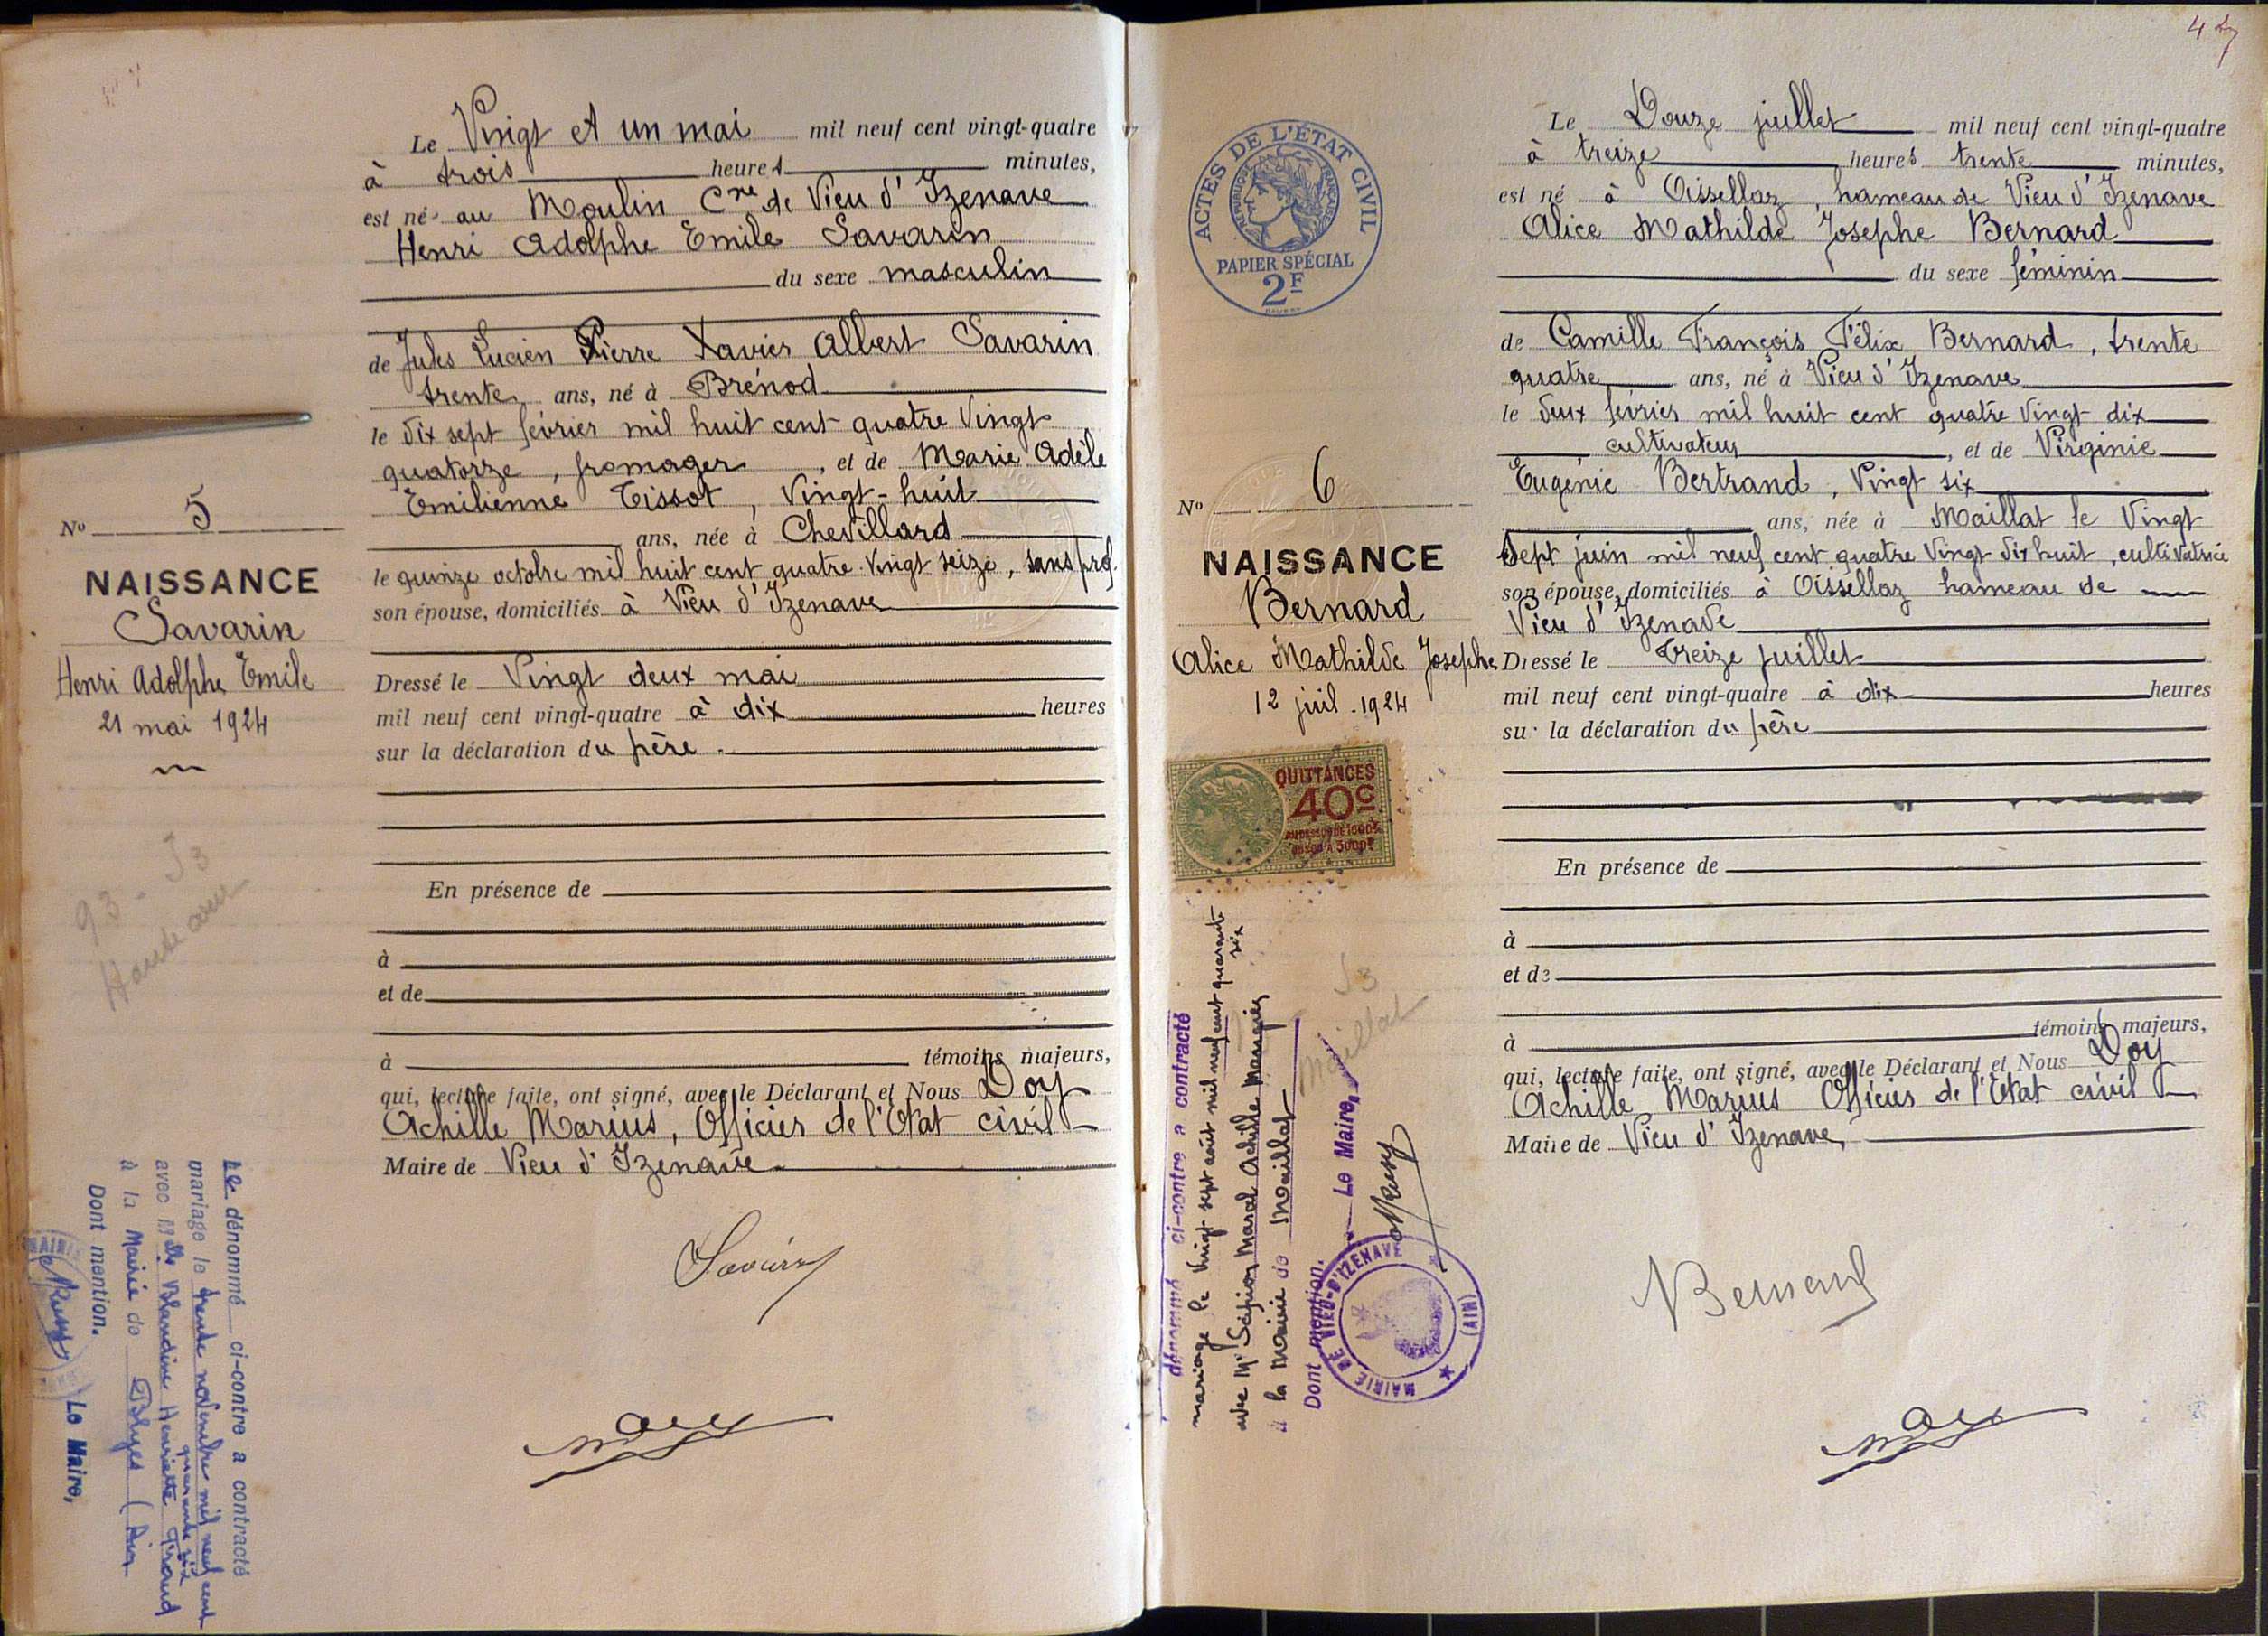 Le Vingt et un mai mil neuf cent vingt-quatre
à trois heures minutes,
est né au Moulin Cne de Vieu d'Izenave
Henri Adolphe Emile Savarin
du sexe masculin
de Jules Lucien Pierre Xavier Albert Savarin
trente ans, né à Brénod
le dix sept février mil huit cent quatre Vingt
quatorze, fromager, et de Marie Adèle
Emilienne Tissot, Vingt-huit
ans, née à Chevillard
le quinze octobre mil huit cent quatre-Vingt seize, sans prof.
son épouse, domiciliés à Vieu d'Izenave
Dressé le Vingt deux mai
mil neuf cent vingt-quatre à dix heures
sur la déclaration du père.
En présence de
à
et de
à témoins majeurs,
qui, lecture faite, ont signé, avec le Déclarant et Nous Doy
Achille Marius, Officier de l'Etat civil
Maire de Vieu d'Izenave
Savarin
No 5
NAISSANCE
Savarin
Henri Adolphe Emile
21 mai 1924
93 - J3
Le dénommé ci-contre a contracté
mariage le trente novembre mil neuf cent
quarante six
avec Mlle Blandine Henriette
à la Mairie de Blyes (Ain
Dont mention.
Le Maire,
47
ACTES DE L'ÉTAT CIVIL
RÉPUBLIQUE FRANÇAISE
PAPIER SPÉCIAL
2F
No 6
NAISSANCE
Bernard
Alice Mathilde Josephe
12 juil. 1924
QUITTANCES
40c
J3
Maillat
dénommé ci-contre a contracté
mariage le Vingt sept août mil neuf cent quarante
six
avec Mr Scipion Marcel Achille
à la Mairie de Maillat
Dont mention.
Le Maire,
MAIRIE DE VIEU-D'IZENAVE
(AIN)
Le Douze juillet mil neuf cent vingt-quatre
à treize heures trente minutes,
est né à Oissellaz, hameau de Vieu d'Izenave
Alice Mathilde Josephe Bernard
du sexe féminin
de Camille François Félix Bernard, trente
quatre ans, né à Vieu d'Izenave
le deux février mil huit cent quatre Vingt dix
cultivateur, et de Virginie
Eugénie Bertrand, Vingt six
ans, née à Maillat le Vingt
sept juin mil neuf cent quatre Vingt dix huit, cultivatrice
son épouse, domiciliés à Oissellaz hameau de
Vieu d'Izenave
Dressé le Treize juillet
mil neuf cent vingt-quatre à dix heures
sur la déclaration du père
En présence de
à
et de
à témoins majeurs,
qui, lecture faite, ont signé, avec le Déclarant et Nous Doy
Achille Marius Officier de l'Etat civil
Maire de Vieu d'Izenave,
Bernard